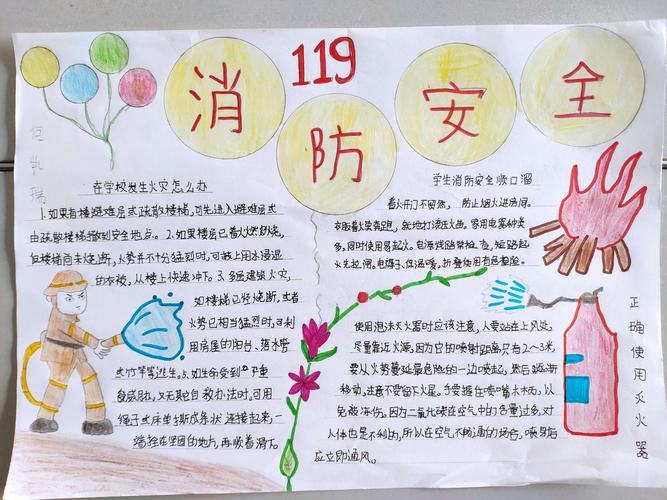 119
消防安全
在学校发生火灾怎么办
1.如果有楼避难层或疏散楼梯,可先进入避难层或
由疏散楼梯撤到安全地点。2.如果楼层已着火燃烧,
但楼梯尚未烧断,火势并不十分猛烈时,可披上用水浸湿
的衣被,从楼上快速冲下。3.多层建筑火灾,
如楼梯已经烧断,或者
火势已相当猛烈时,可利
用房屋的阳台、落水管
或竹竿等逃生。4.如生命受到严重
威胁,又无其它自救办法时,可用
绳子或床单撕成条状连接起来,一
端拴在坚固的地方,再顺着滑下。
学生消防安全顺口溜
着火开门不留然,防止烟火进房间。
衣服着火莫奔跑,就地打滚压火苗。家用电器种类
多,同时使用易起火。电源线路常检查,短路起
火先拉闸。电褥子、保温暖,折叠使用有危险。
使用泡沫灭火器时应该注意,人要站在上风处,
尽量靠近火源,因为它的喷射距离只有2～3米,
要从火势蔓延最危险的一边喷起,然后逐渐
移动,注意不要留下火星。手要握在喷嘴木柄,以
免被冻伤。因为二氧化碳在空气中的含量过多,对
人体也是不利的,所以在空气不畅通的场合,喷射后
应立即通风。
正确使用灭火器